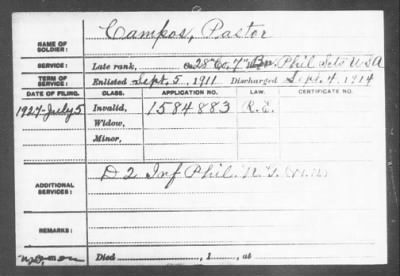 NAME OF SOLDIER: Campos, Pastor
SERVICE: Late rank, Co. 7" Bn. Phil Scts USA
TERM OF SERVICE: Enlisted Sept. 5, 1911 Discharged Sept. 4, 1914
DATE OF FILING. CLASS. APPLICATION NO. LAW. CERTIFICATE NO.
1927-July 5 Invalid, 1584883
Widow,
Minor,
ADDITIONAL SERVICES: D 2 Inf Phil. N.G.
REMARKS:
Died , 1 , at